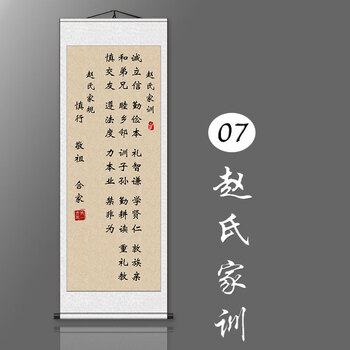 赵氏家训
诚立信 勤俭本 礼智谦 学贤仁 敦族亲
和弟兄 睦乡邻 训子孙 勤耕读 重礼教
慎交友 遵法度 力本业 禁非为
赵氏家规
慎行 敬祖 合家
07
赵氏家训